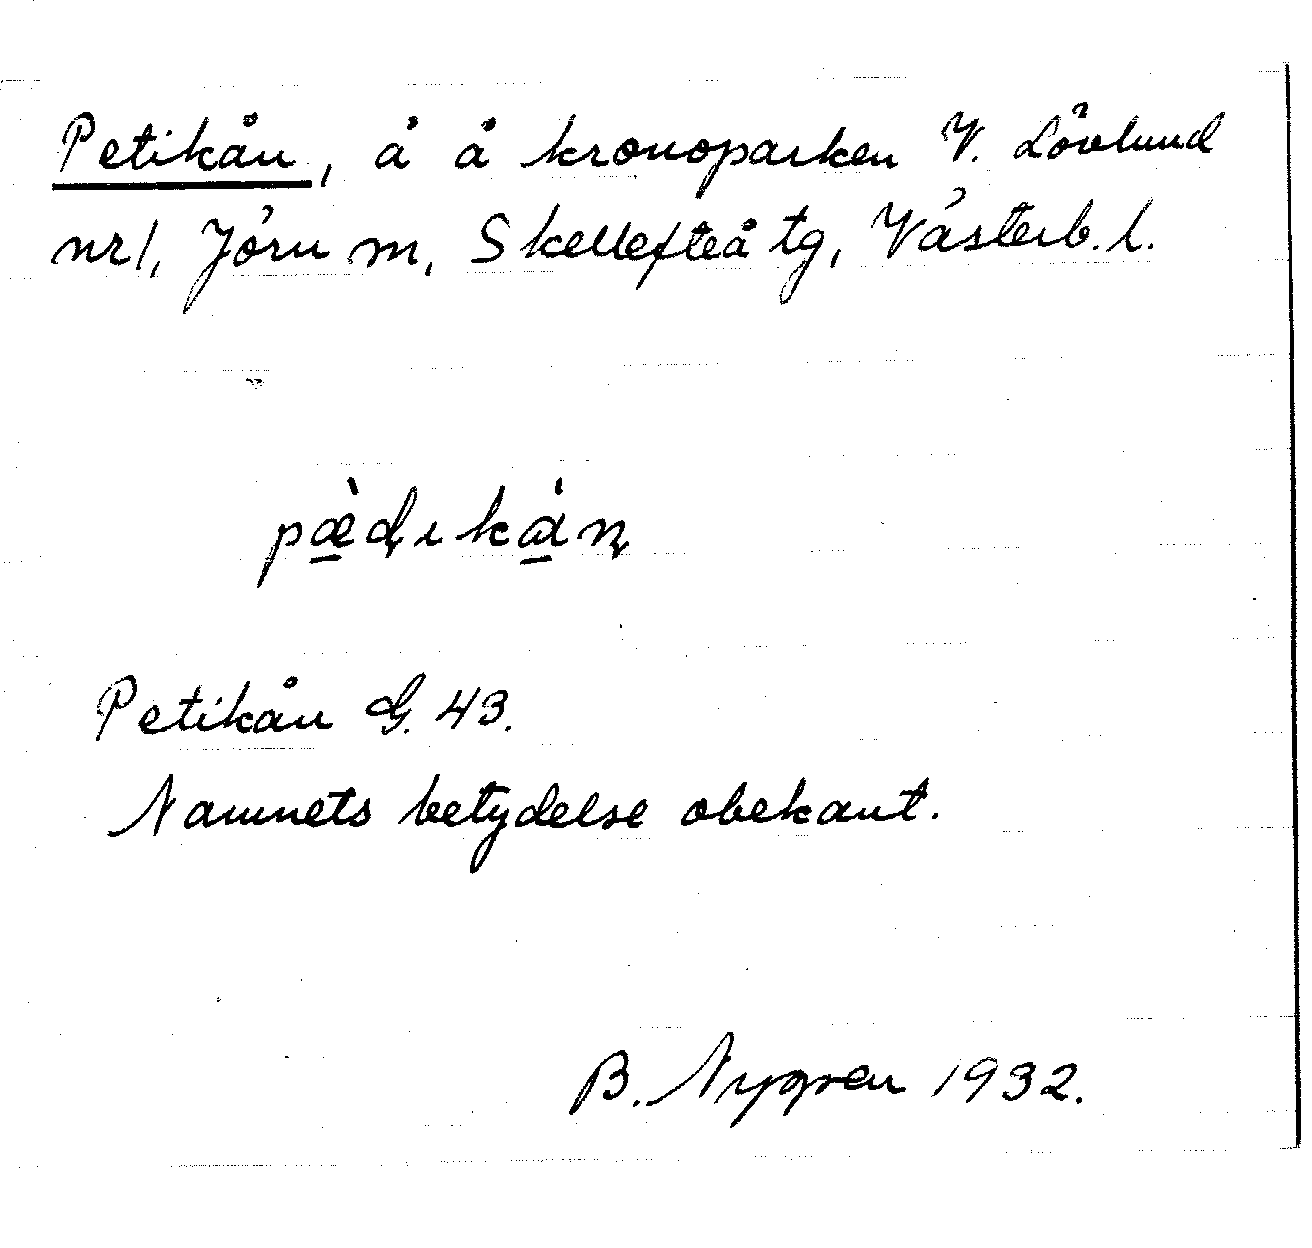 Petikån, å å kronoparken V. Lövlund
nr 1, Jörn sn, Skellefteå tg, Västerb. l.
pæ̀dıkån
Petikån G. 43.
Namnets betydelse obekant.
B. Nygren 1932.